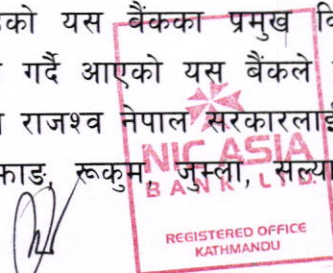 को यस बैंकका प्रमुख
गर्दै आएको यस बैंकले
राजश्व नेपाल सरकारलाई
रूकुम, जुम्ला,
NIC ASIA
BANK LTD.
REGISTERED OFFICE
KATHMANDU